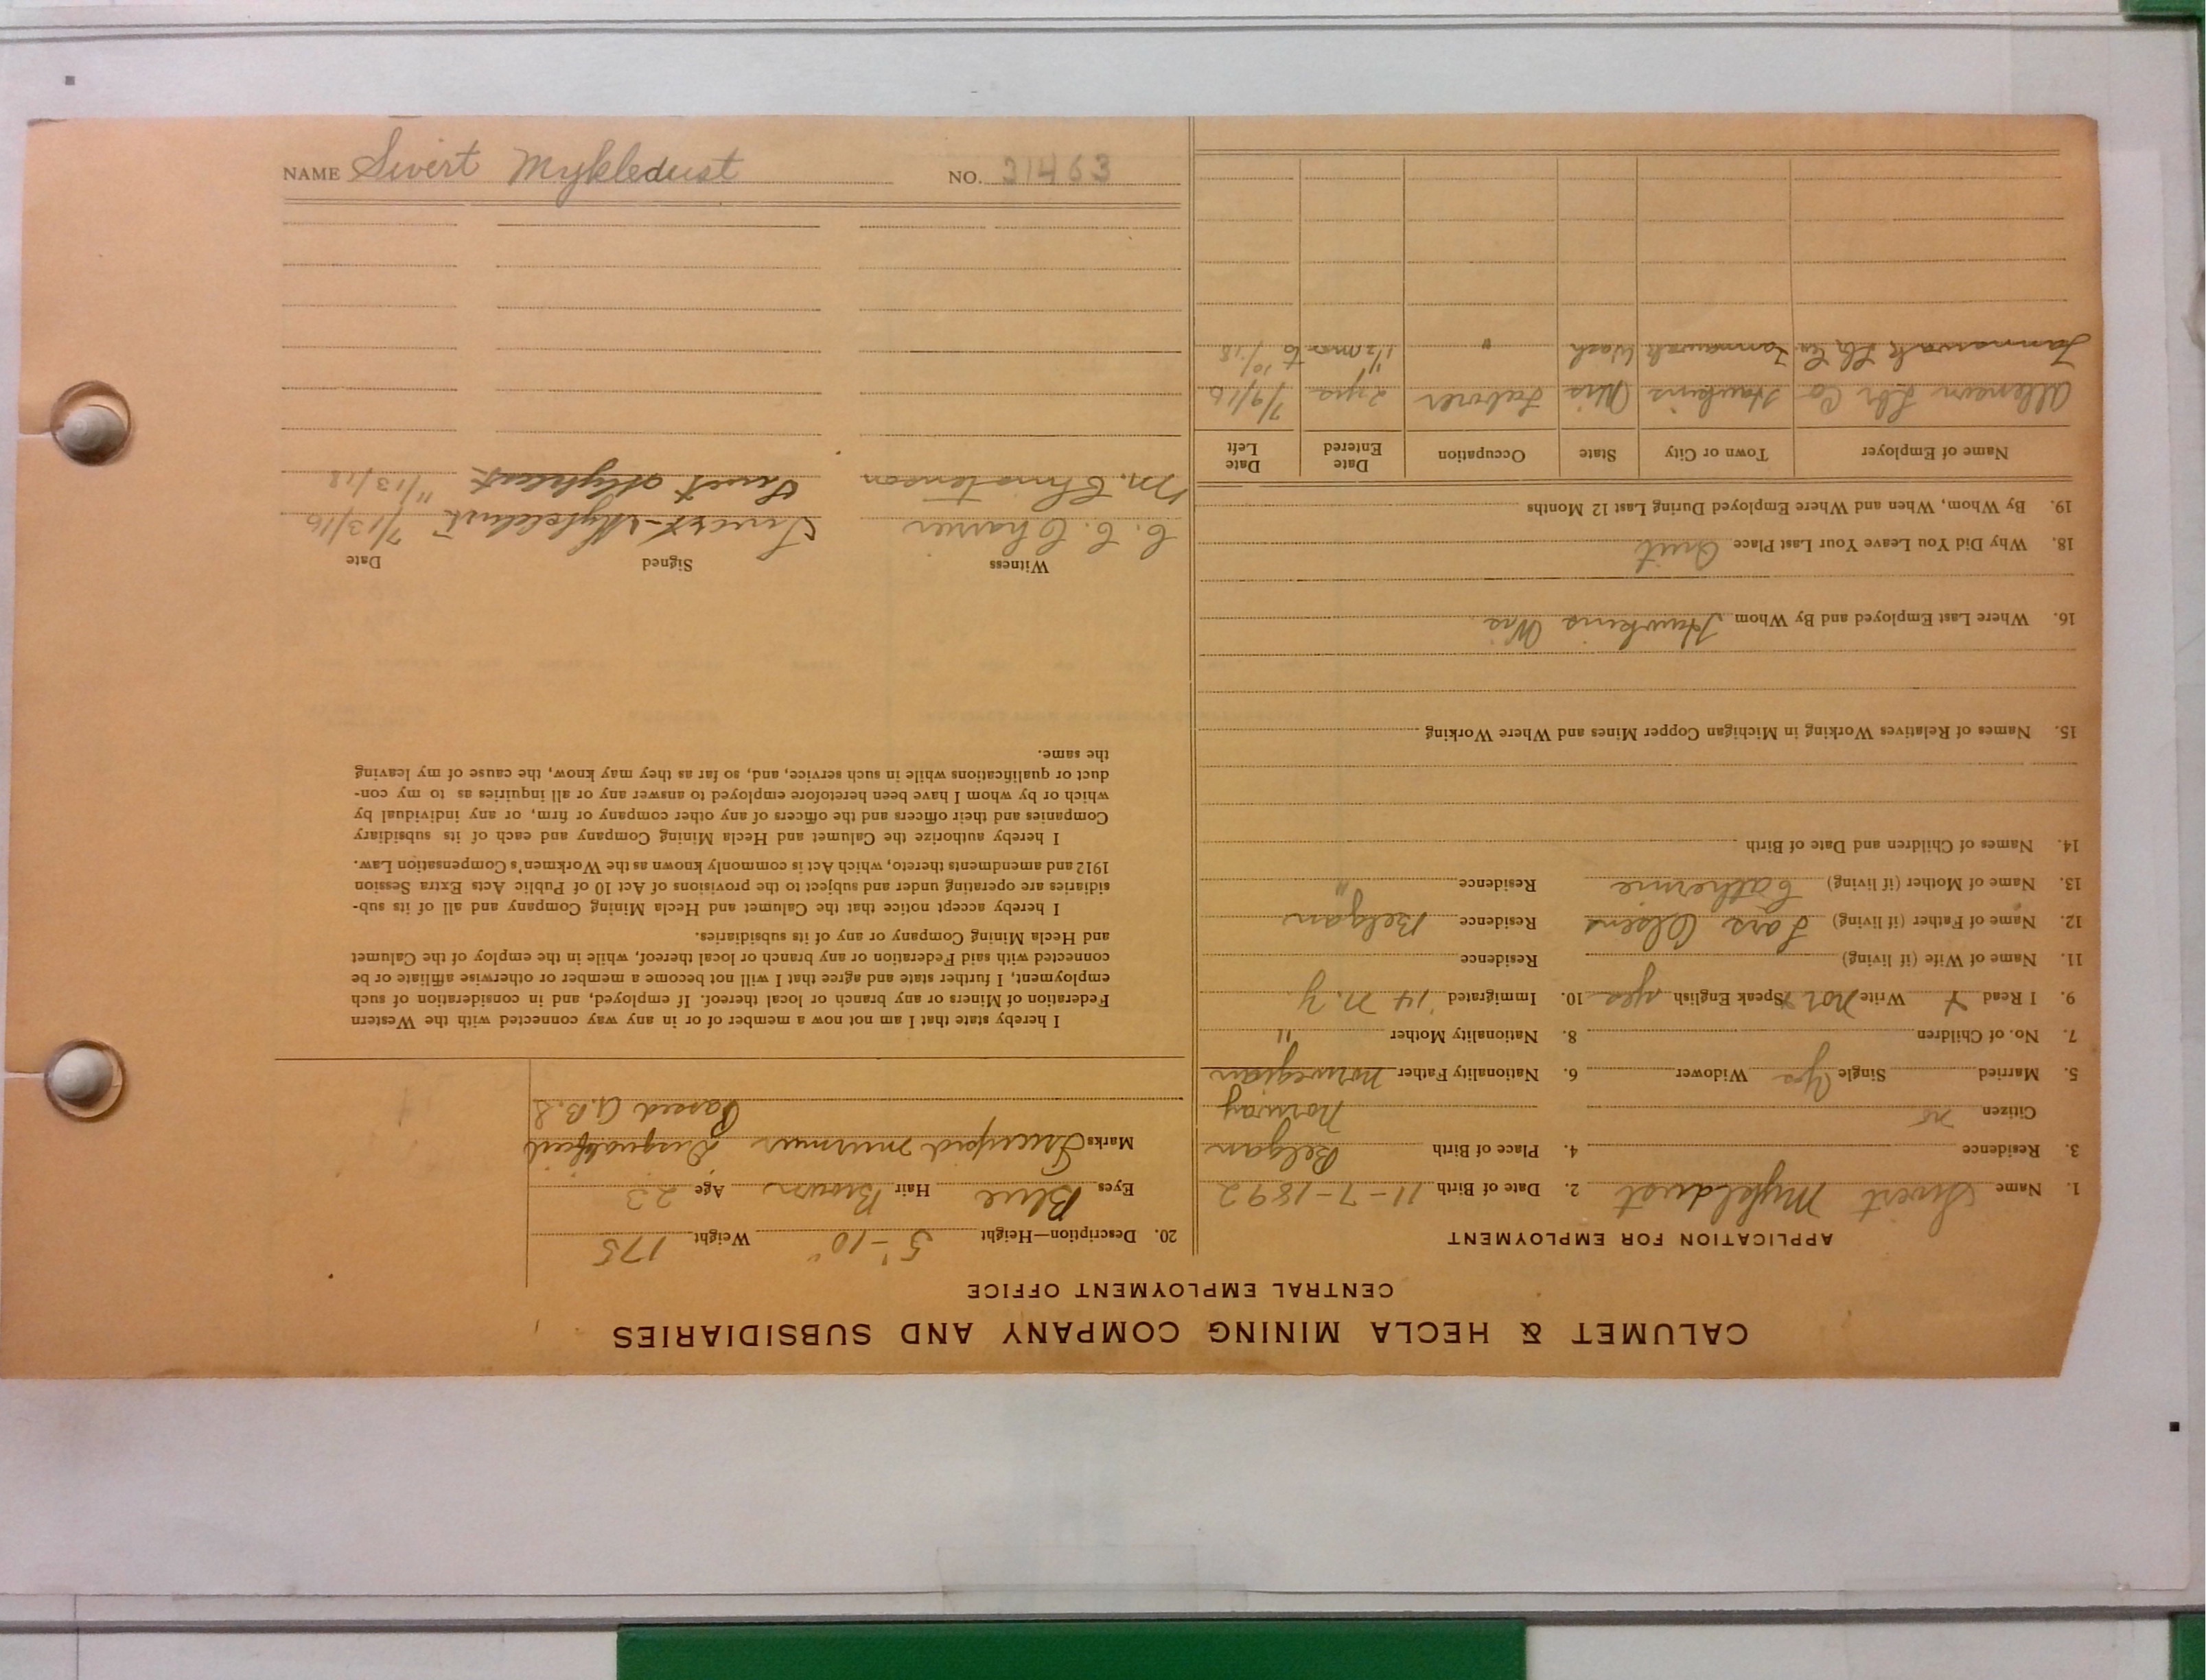 NAME Sivert Mykledust NO. 31463
CALUMET & HECLA MINING COMPANY AND SUBSIDIARIES
CENTRAL EMPLOYMENT OFFICE
APPLICATION FOR EMPLOYMENT
1. Name Sivert Mykledust 2. Date of Birth 11-7-1892
3. Residence 4. Place of Birth Belgan
Citizen no Norway
5. Married Single Yes Widower 6. Nationality Father Norwegian
7. No. of Children 8. Nationality Mother "
9. I Read Write Nor Speak English yes 10. Immigrated '14 N.Y.
11. Name of Wife (if living) Residence
12. Name of Father (if living) Lars Olsens Residence Belgan
13. Name of Mother (if living) Catherine Residence "
14. Names of Children and Date of Birth
15. Names of Relatives Working in Michigan Copper Mines and Where Working
16. Where Last Employed and By Whom Hawkins Wis
18. Why Did You Leave Your Last Place Quit
19. By Whom, When and Where Employed During Last 12 Months
Name of Employer Town or City State Occupation Date Entered Date Left
Lbr Co Hawkins Wis Laborer 2 yrs 7/9/16
Lbr Co. Wash " 1 1/2 mos to 10/18
20. Description—Height 5'-10" Weight 175
Eyes Blue Hair Brown Age 23
Marks murmur Disqualified
Passed A.B.S.
I hereby state that I am not now a member of or in any way connected with the Western
Federation of Miners or any branch or local thereof. If employed, and in consideration of such
employment, I further state and agree that I will not become a member or otherwise affiliate or be
connected with said Federation or any branch or local thereof, while in the employ of the Calumet
and Hecla Mining Company or any of its subsidiaries.
I hereby accept notice that the Calumet and Hecla Mining Company and all of its sub-
sidiaries are operating under and subject to the provisions of Act 10 of Public Acts Extra Session
1912 and amendments thereto, which Act is commonly known as the Workmen's Compensation Law.
I hereby authorize the Calumet and Hecla Mining Company and each of its subsidiary
Companies and their officers and the officers of any other company or firm, or any individual by
which or by whom I have been heretofore employed to answer any or all inquiries as to my con-
duct or qualifications while in such service, and, so far as they may know, the cause of my leaving
the same.
Witness Signed Date
C. C. Sivert Mykledust 7/13/16
M. Christenson Sivert 11/13/18